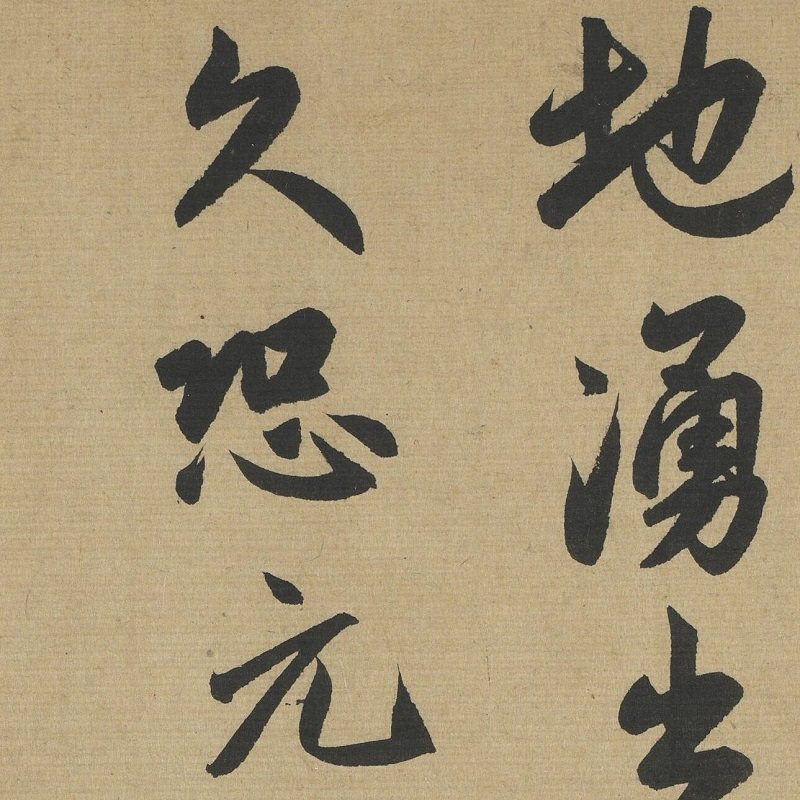 地湧出
久恐元